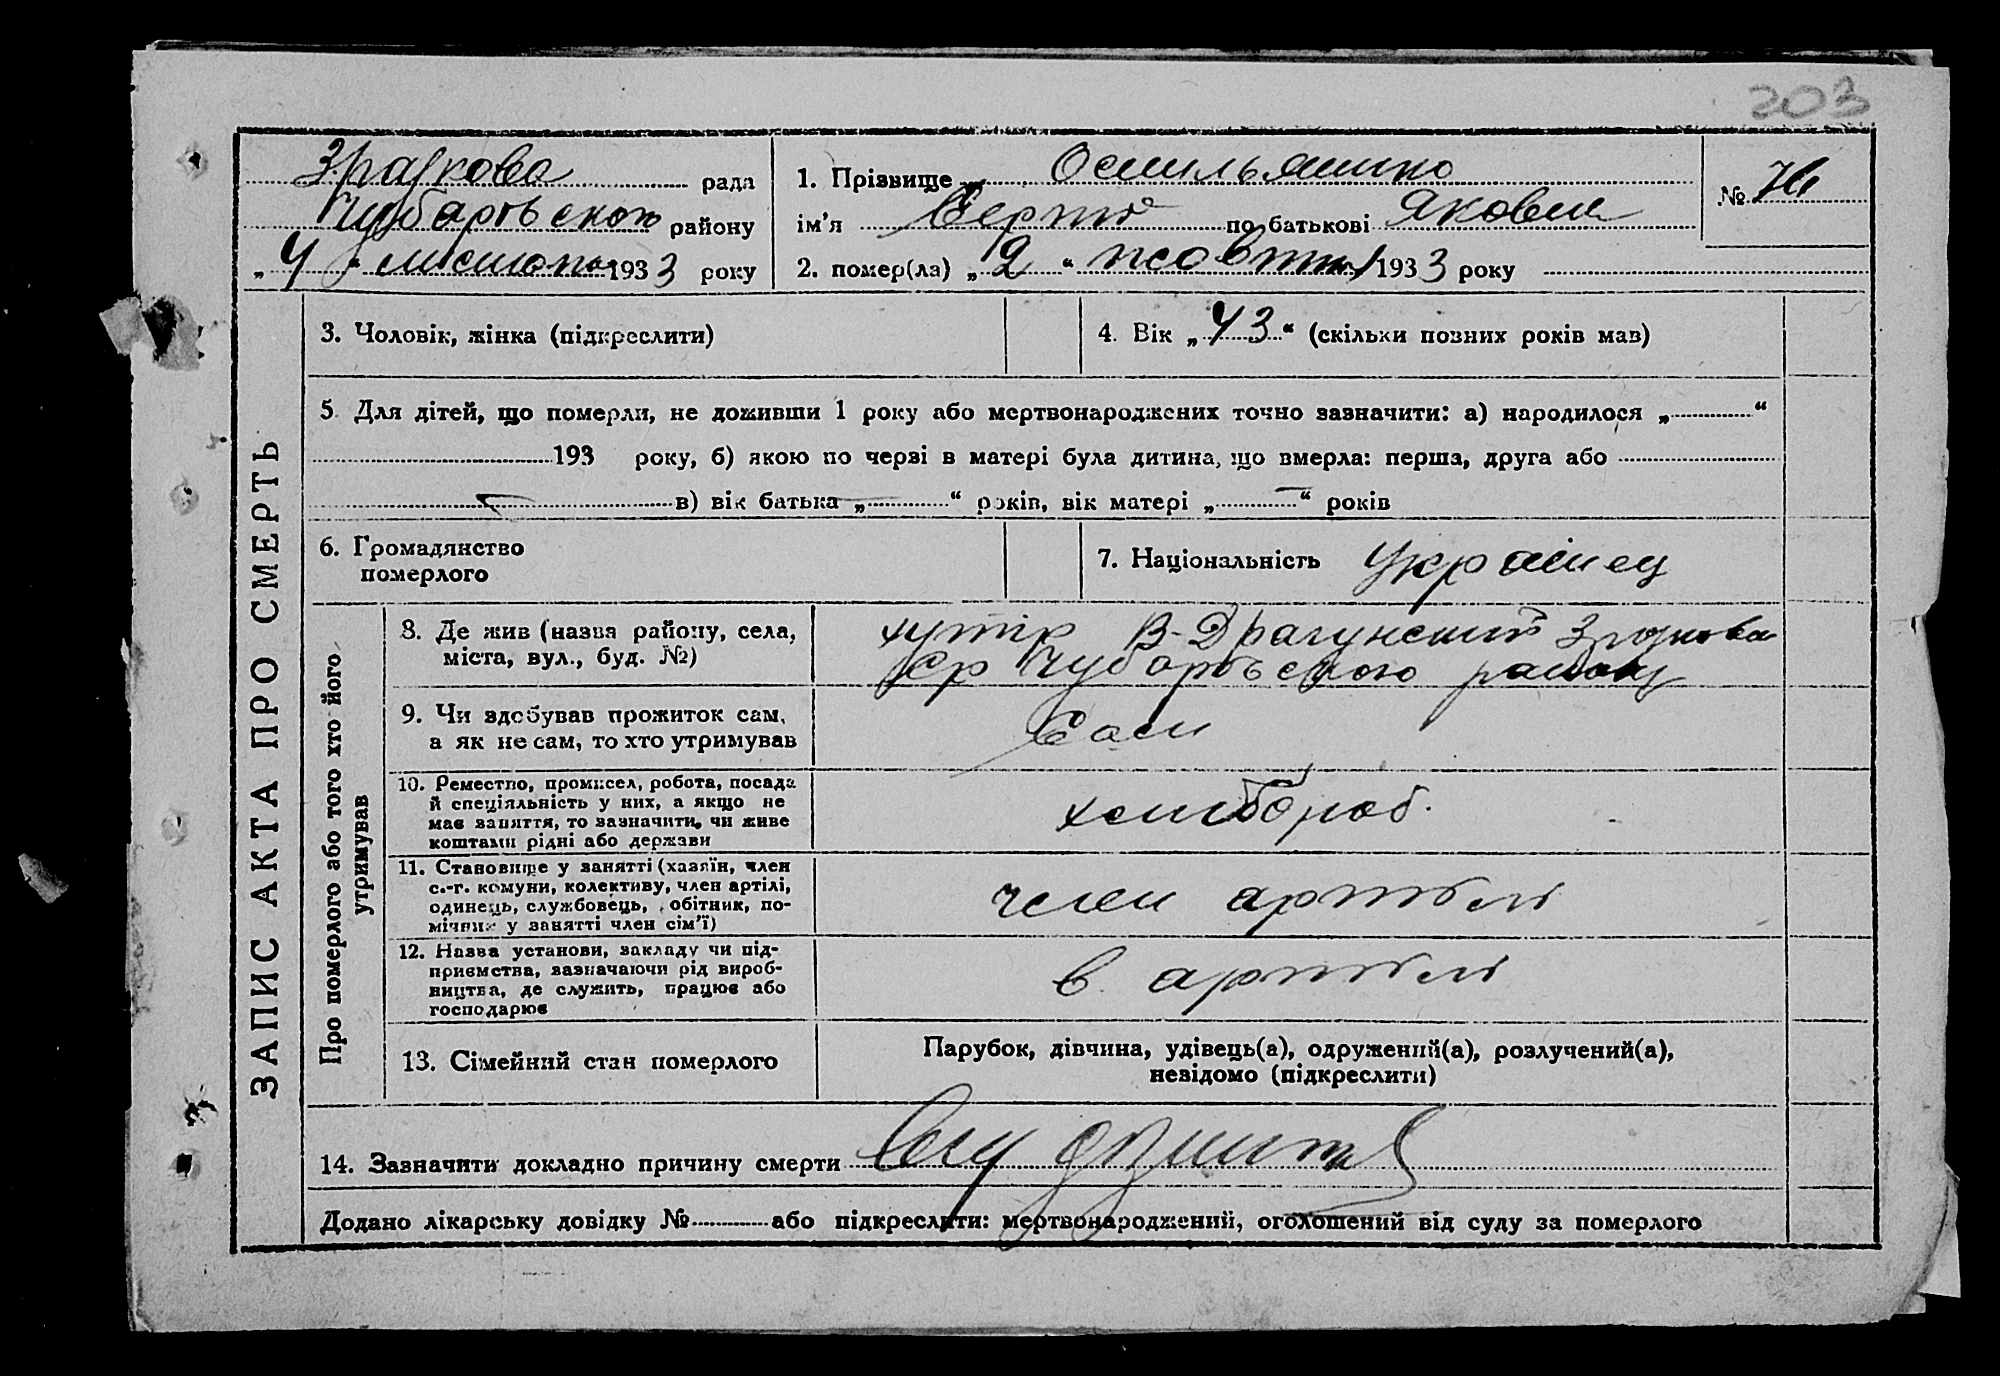 203
Зразкова рада
Чубарівського району
„4“ листопа 1933 року
1. Прізвище Осмильяшко
ім'я Сергій по батькові Яковл
2. помер(ла) „2“ жовтня 1933 року
№ 76
ЗАПИС АКТА ПРО СМЕРТЬ
3. Чоловік, жінка (підкреслити)
4. Вік „43“ (скільки повних років мав)
5. Для дітей, що померли, не доживши 1 року або мертвонароджених точно зазначити: а) народилося „ “
193 року, б) якою по черзі в матері була дитина, що вмерла: перша, друга або
в) вік батька „ “ років, вік матері „ “ років
6. Громадянство
померлого
7. Національність Українец
Про померлого або того хто його
утримував
8. Де жив (назва району, села,
міста, вул., буд. №)
хутір В-Драгунский Зразкова
с/р Чубарівського району
9. Чи здобував прожиток сам,
а як не сам, то хто утримував
Сам
10. Ремество, промисел, робота, посада
й спеціяльність у них, а якщо не
має заняття, то зазначити, чи живе
коштами рідні або держави
хлибороб.
11. Становище у занятті (хазяїн, член
с.-г. комуни, колективу, член артілі,
одинець, службовець, робітник, по-
мічник у занятті член сім'ї)
член артели
12. Назва установи, закладу чи під-
приємства, зазначаючи рід вироб-
ництва, де служить, працює або
господарює
в артели
13. Сімейний стан померлого
Парубок, дівчина, удівець(а), одружений(а), розлучений(а),
невідомо (підкреслити)
14. Зазначити докладно причину смерти
Додано лікарську довідку № або підкреслити: мертвонароджений, оголошений від суду за померлого